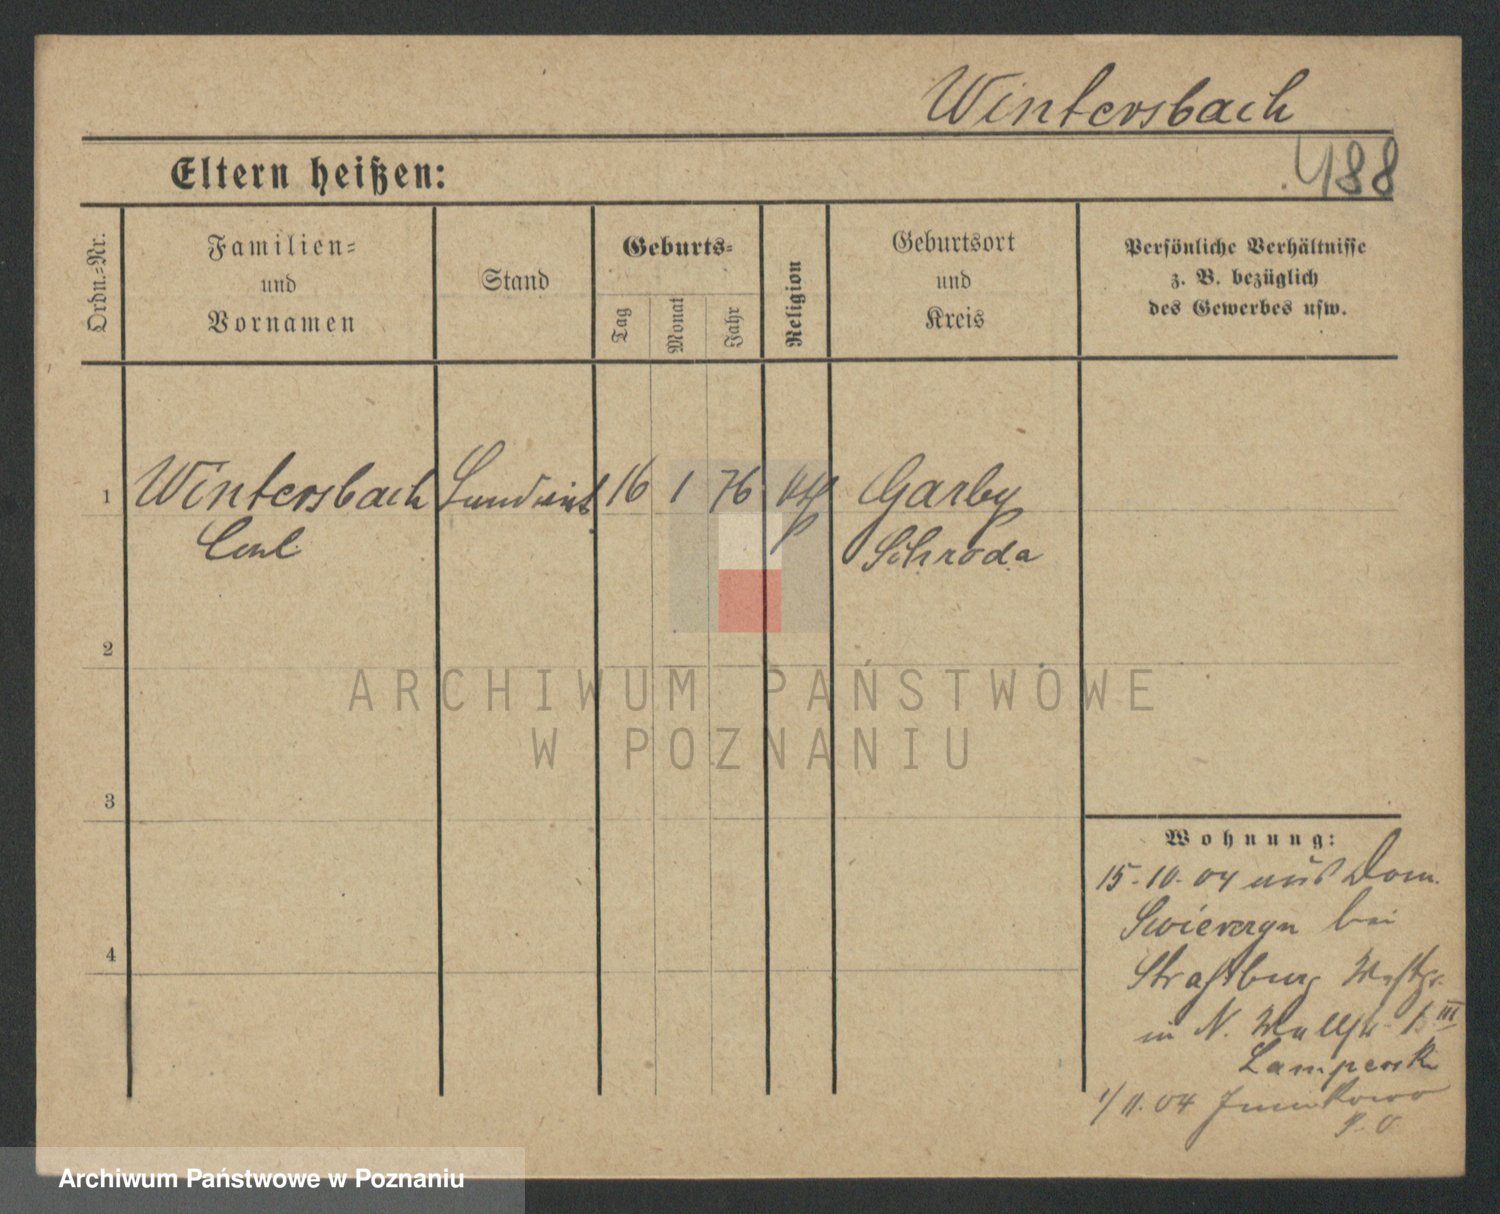 Wintersbach
488
Eltern heißen:
Ordn.-Nr.
Familien-
und
Vornamen
Stand
Geburts-
Tag
Monat
Jahr
Religion
Geburtsort
und
Kreis
Persönliche Verhältnisse
z. B. bezüglich
des Gewerbes usw.
1
Wintersbach
Landwirt
16
1
76
Garby
Carl
Schroda
2
3
4
Wohnung:
15.10.04 aus Dom.
bei
Straßburg Westpr.
in N. Wallstr. 1 III
1/11.04
ARCHIWUM PAŃSTWOWE
W POZNANIU
Archiwum Państwowe w Poznaniu